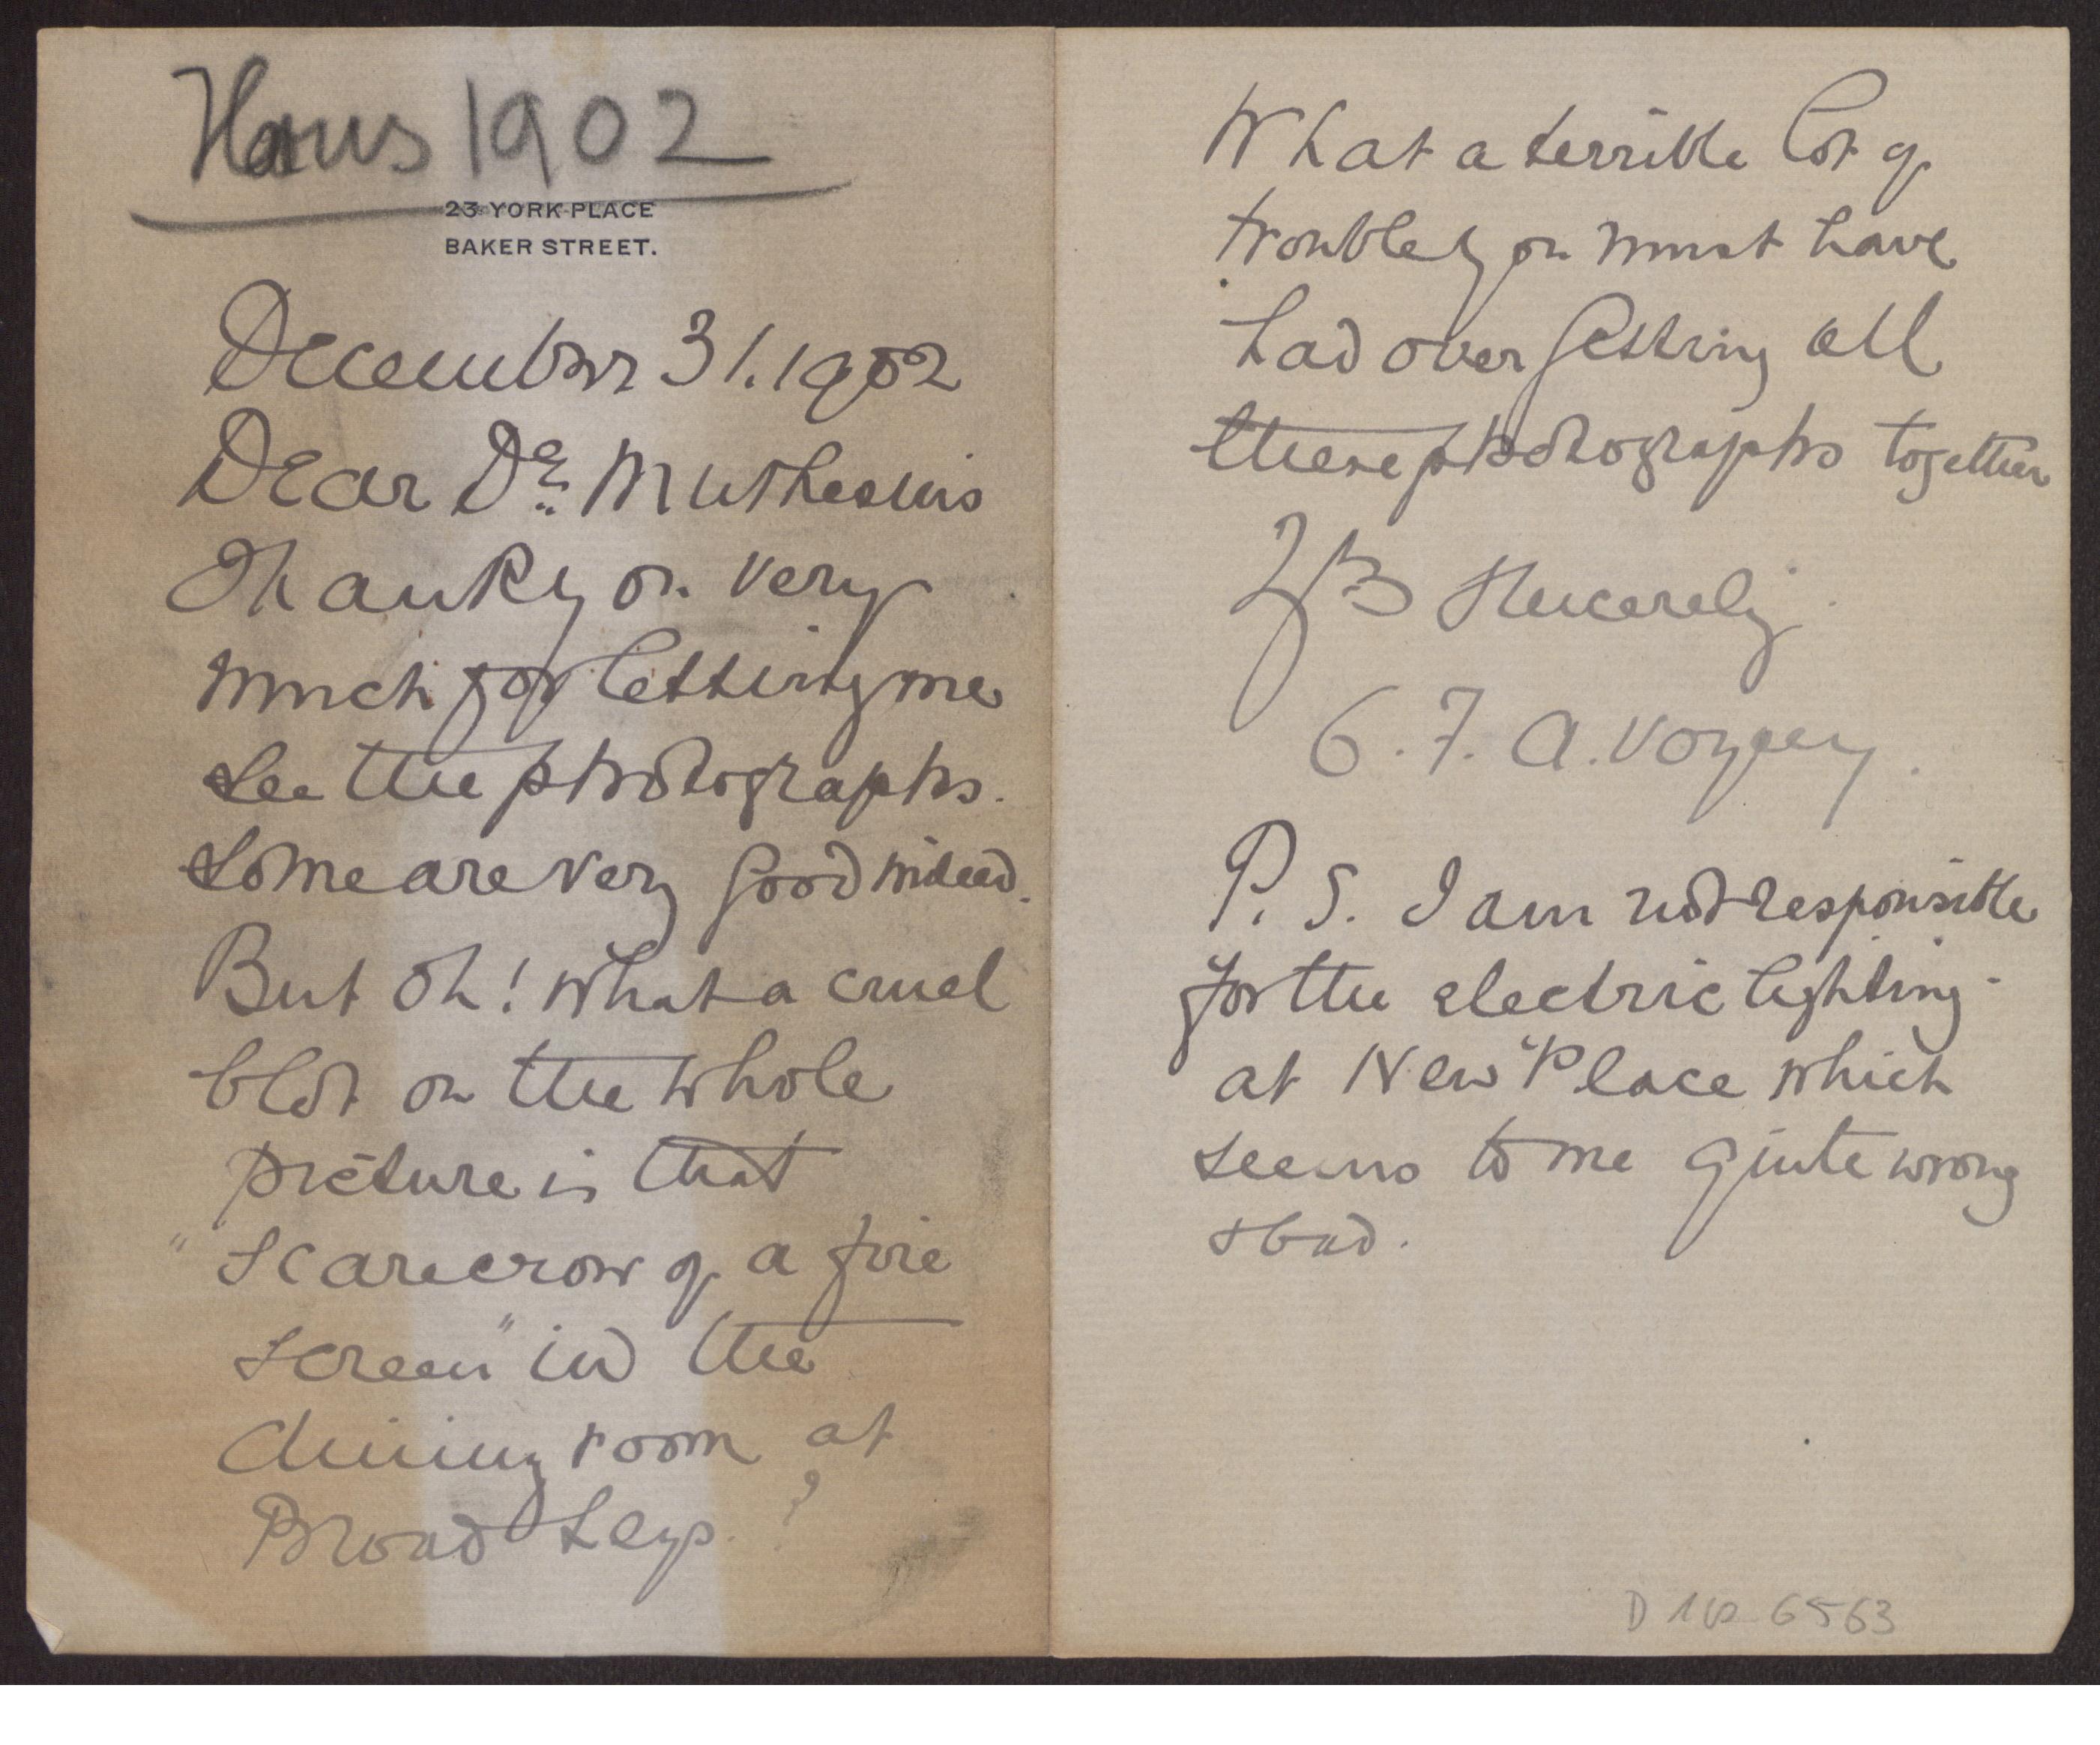 Haus 1902
23 YORK PLACE
BAKER STREET.
December 31. 1902
Dear Dr. Muthesius
Thank you very
much for letting me
see the photographs.
Some are very good indeed.
But oh! what a cruel
blot on the whole
picture is that
"Scarecrow of a fire
screen" in the
dining room at
Broad Leys.?
What a terrible lot of
trouble you must have
had over getting all
these photographs together
Yrs Sincerely
C. F. A. Voysey.
P. S. I am not responsible
for the electric lighting
at New Place which
seems to me quite wrong
& bad.
D 102-6563